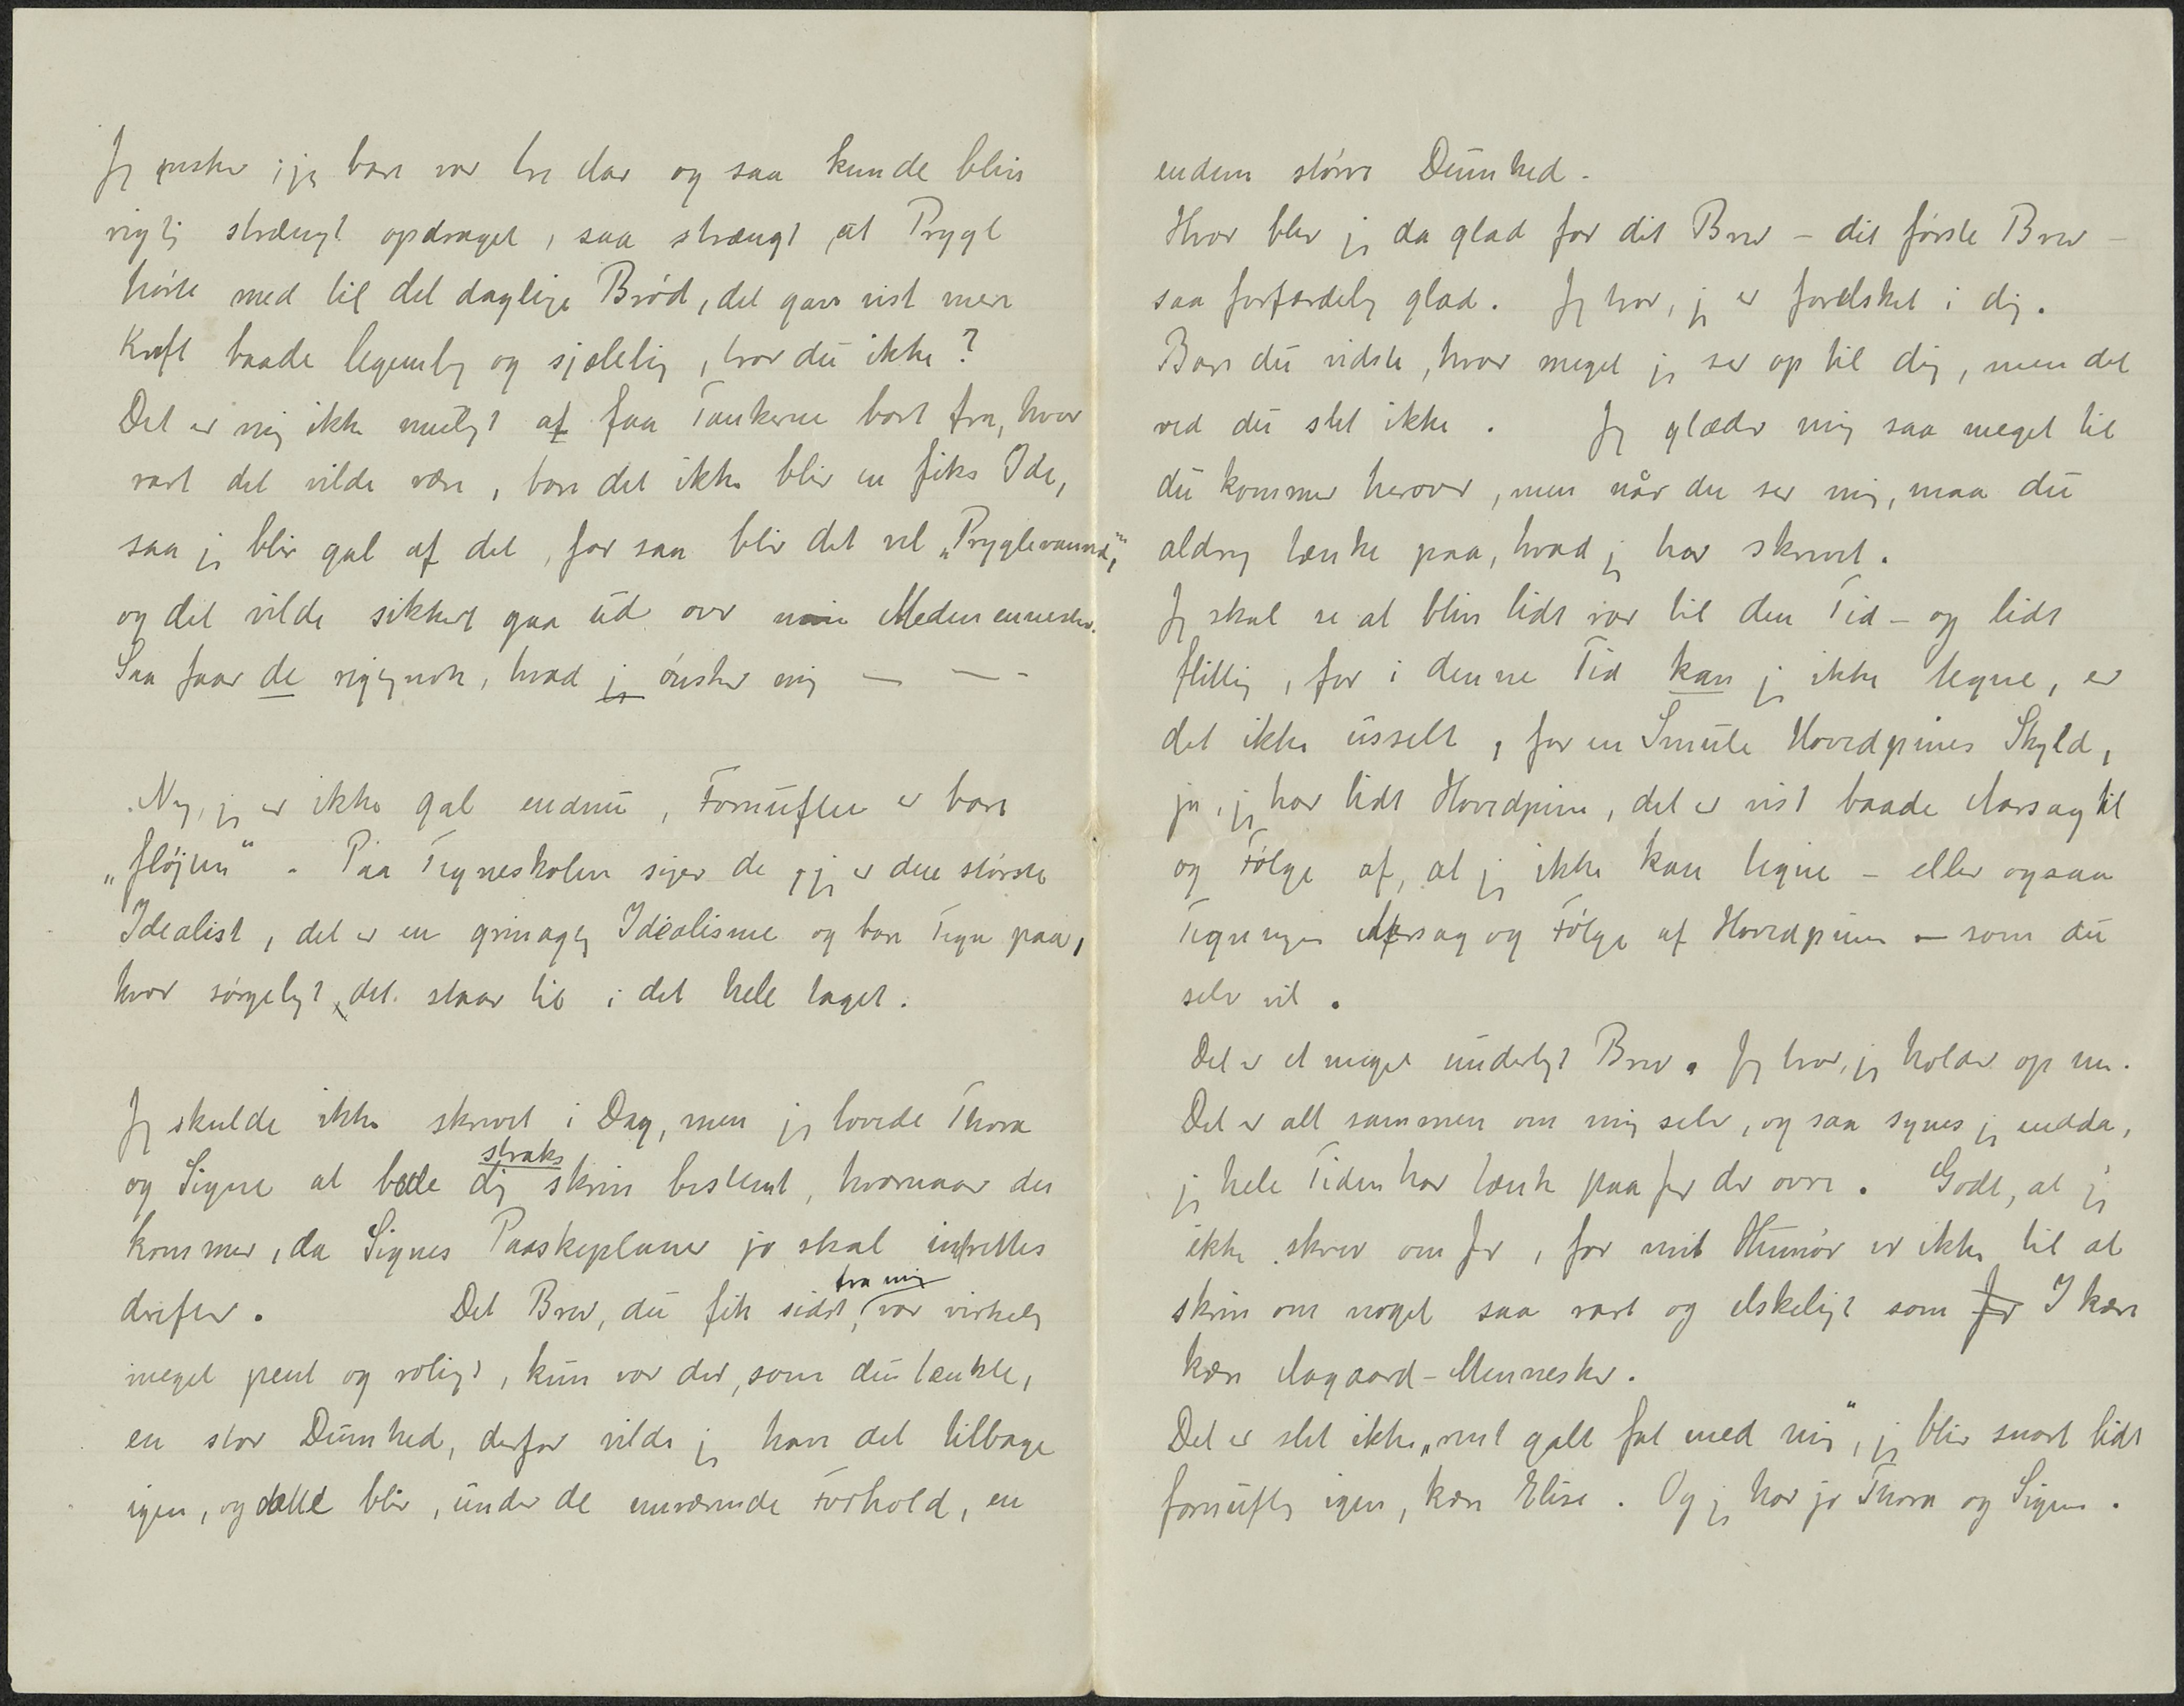 Jeg ønsker, jeg bare var tre Aar og saa kunde blive
rigtig strængt opdraget, saa strængt, at Prygl
hørte med til det daglige Brød, det gav vist mere
Kraft baade legemlig og sjælelig, tror du ikke?
Det er mig ikke muligt at faa Tankerne bort fra, hvor
rart det vilde være, bare det ikke blir en fiks Ide,
saa jeg blir gal af det, for saa blir det vel „Pryglevanvid",
og det vilde sikkert gaa ud over mine Medmennesker.
Saa faar de rigtignok, hvad jeg ønsker mig — — -
Nej, jeg er ikke gal endnu, Fornuften er bare
„fløjten". Paa Tegneskolen siger de, jeg er den største
Idealist, det er en grinagtig Idealisme og bare Tegn paa,
hvor sørgeligt det staar til i det hele taget.
Jeg skulde ikke skrevet i Dag, men jeg lovede Thora
og Signe at bede dig straks skrive bestemt, hvornaar du
kommer, da Signes Paaskeplaner jo skal indrettes
derefter. Det Brev, du fik sidst fra mig, var virkelig
meget pent og roligt, kun var der, som du tænkte,
en stor Dumhed, derfor vilde jeg have det tilbage
igen, og dette blir, under de nuværende Forhold, en
endnu større Dumhed.
Hvor blev jeg da glad for dit Brev – dit første Brev –
saa forfærdelig glad. Jeg tror, jeg er forelsket i dig.
Bare du vidste, hvor meget jeg ser op til dig, men det
ved du slet ikke. Jeg glæder mig saa meget til
du kommer herover, men når du ser mig, maa du
aldrig tænke paa, hvad jeg har skrevet.
Jeg skal se at blive lidt rar til den Tid – og lidt
flittig, for i denne Tid kan jeg ikke tegne, er
det ikke usselt, for en Smule Hovedpines Skyld,
ja, jeg har lidt Hovedpine, det er vist baade Aarsag til
og Følge af, at jeg ikke kan tegne – eller ogsaa
Tegningen Aarsag og Følge af Hovedpinen – som du
selv vil.
Det er et meget underligt Brev. Jeg tror, jeg holder op nu.
Det er alt sammen om mig selv, og saa synes jeg endda,
jeg hele Tiden har tænkt paa jer der ovre. Godt, at jeg
ikke skrev om jer, for mit Humør er ikke til at
skrive om noget saa rart og elskeligt som jer I kære
kære Aagaard-Mennesker.
Det er slet ikke „rent galt fat med mig", jeg blir snart lidt
fornuftig igen, kære Elise. Og jeg har jo Thora og Signe.